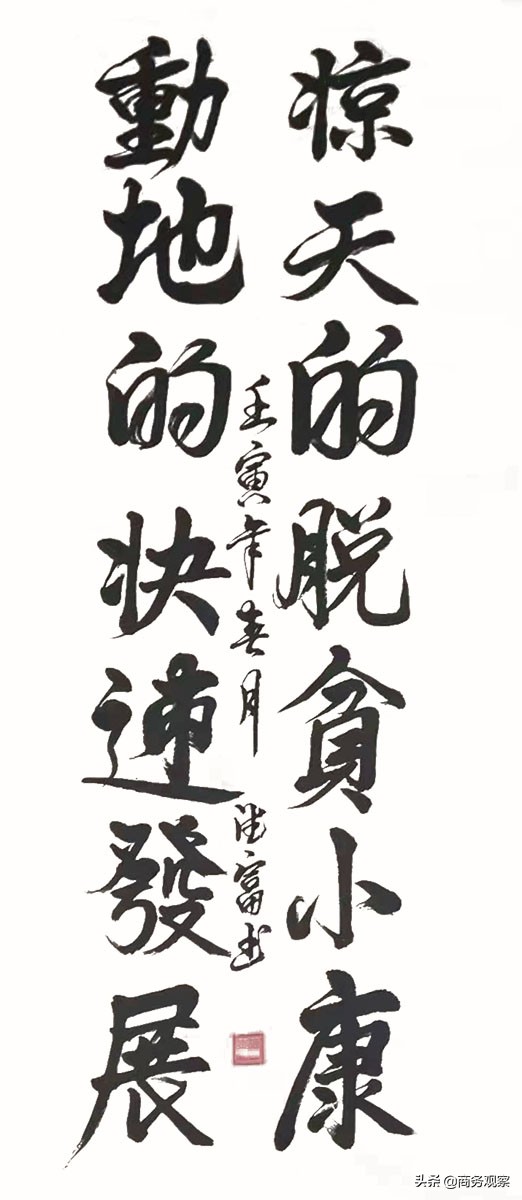 惊天的脱貧小康
動地的快速發展
壬寅年春月
富书
头条 @商务观察